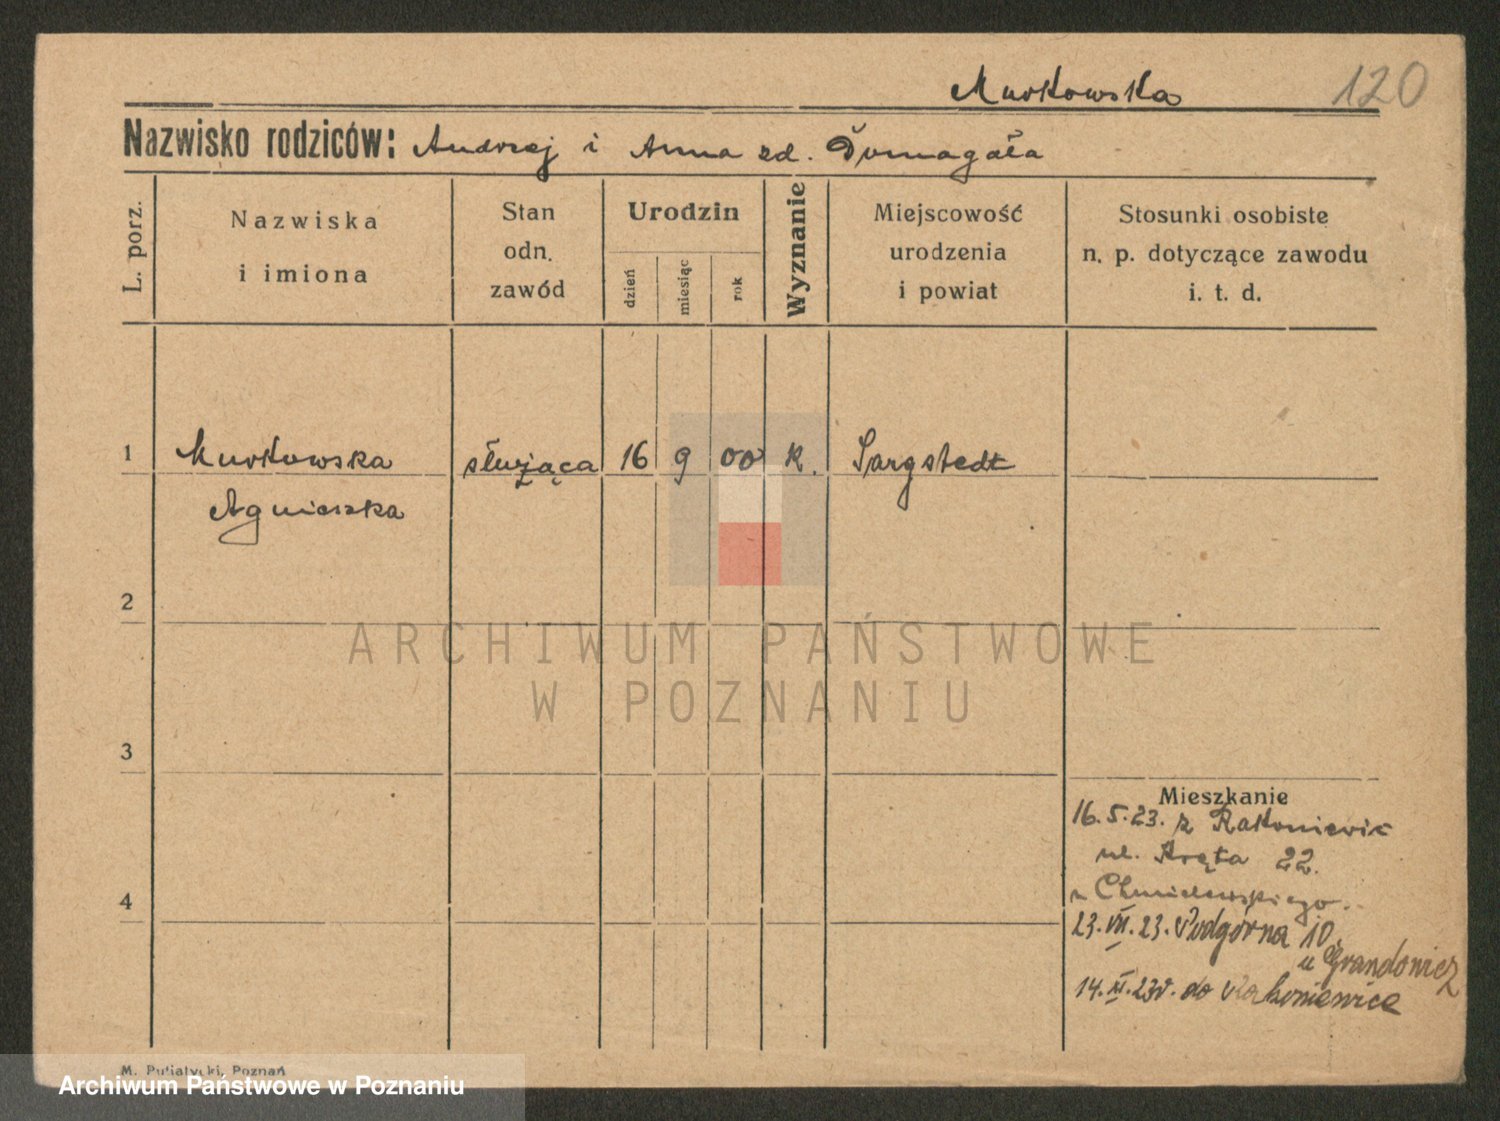 Murkowska 120
Nazwisko rodziców: Andrzej i Anna zd. Domagała
L. porz.
Nazwiska
i imiona
Stan
odn.
zawód
Urodzin
dzień
miesiąc
rok
Wyznanie
Miejscowość
urodzenia
i powiat
Stosunki osobiste
n. p. dotyczące zawodu
i. t. d.
1 Murkowska służąca 16 9 00 k. Sargstedt
Agnieszka
2
ARCHIWUM PAŃSTWOWE
W POZNANIU
3
Mieszkanie
16.5.23. z Rakoniewic
ul. Kręta 22.
u Chmielewskiego.
4
23.VII.23. Podgórna 10
u Grandowicz
14.XI.23. do Rakoniewice
M. Putiatycki, Poznań
Archiwum Państwowe w Poznaniu